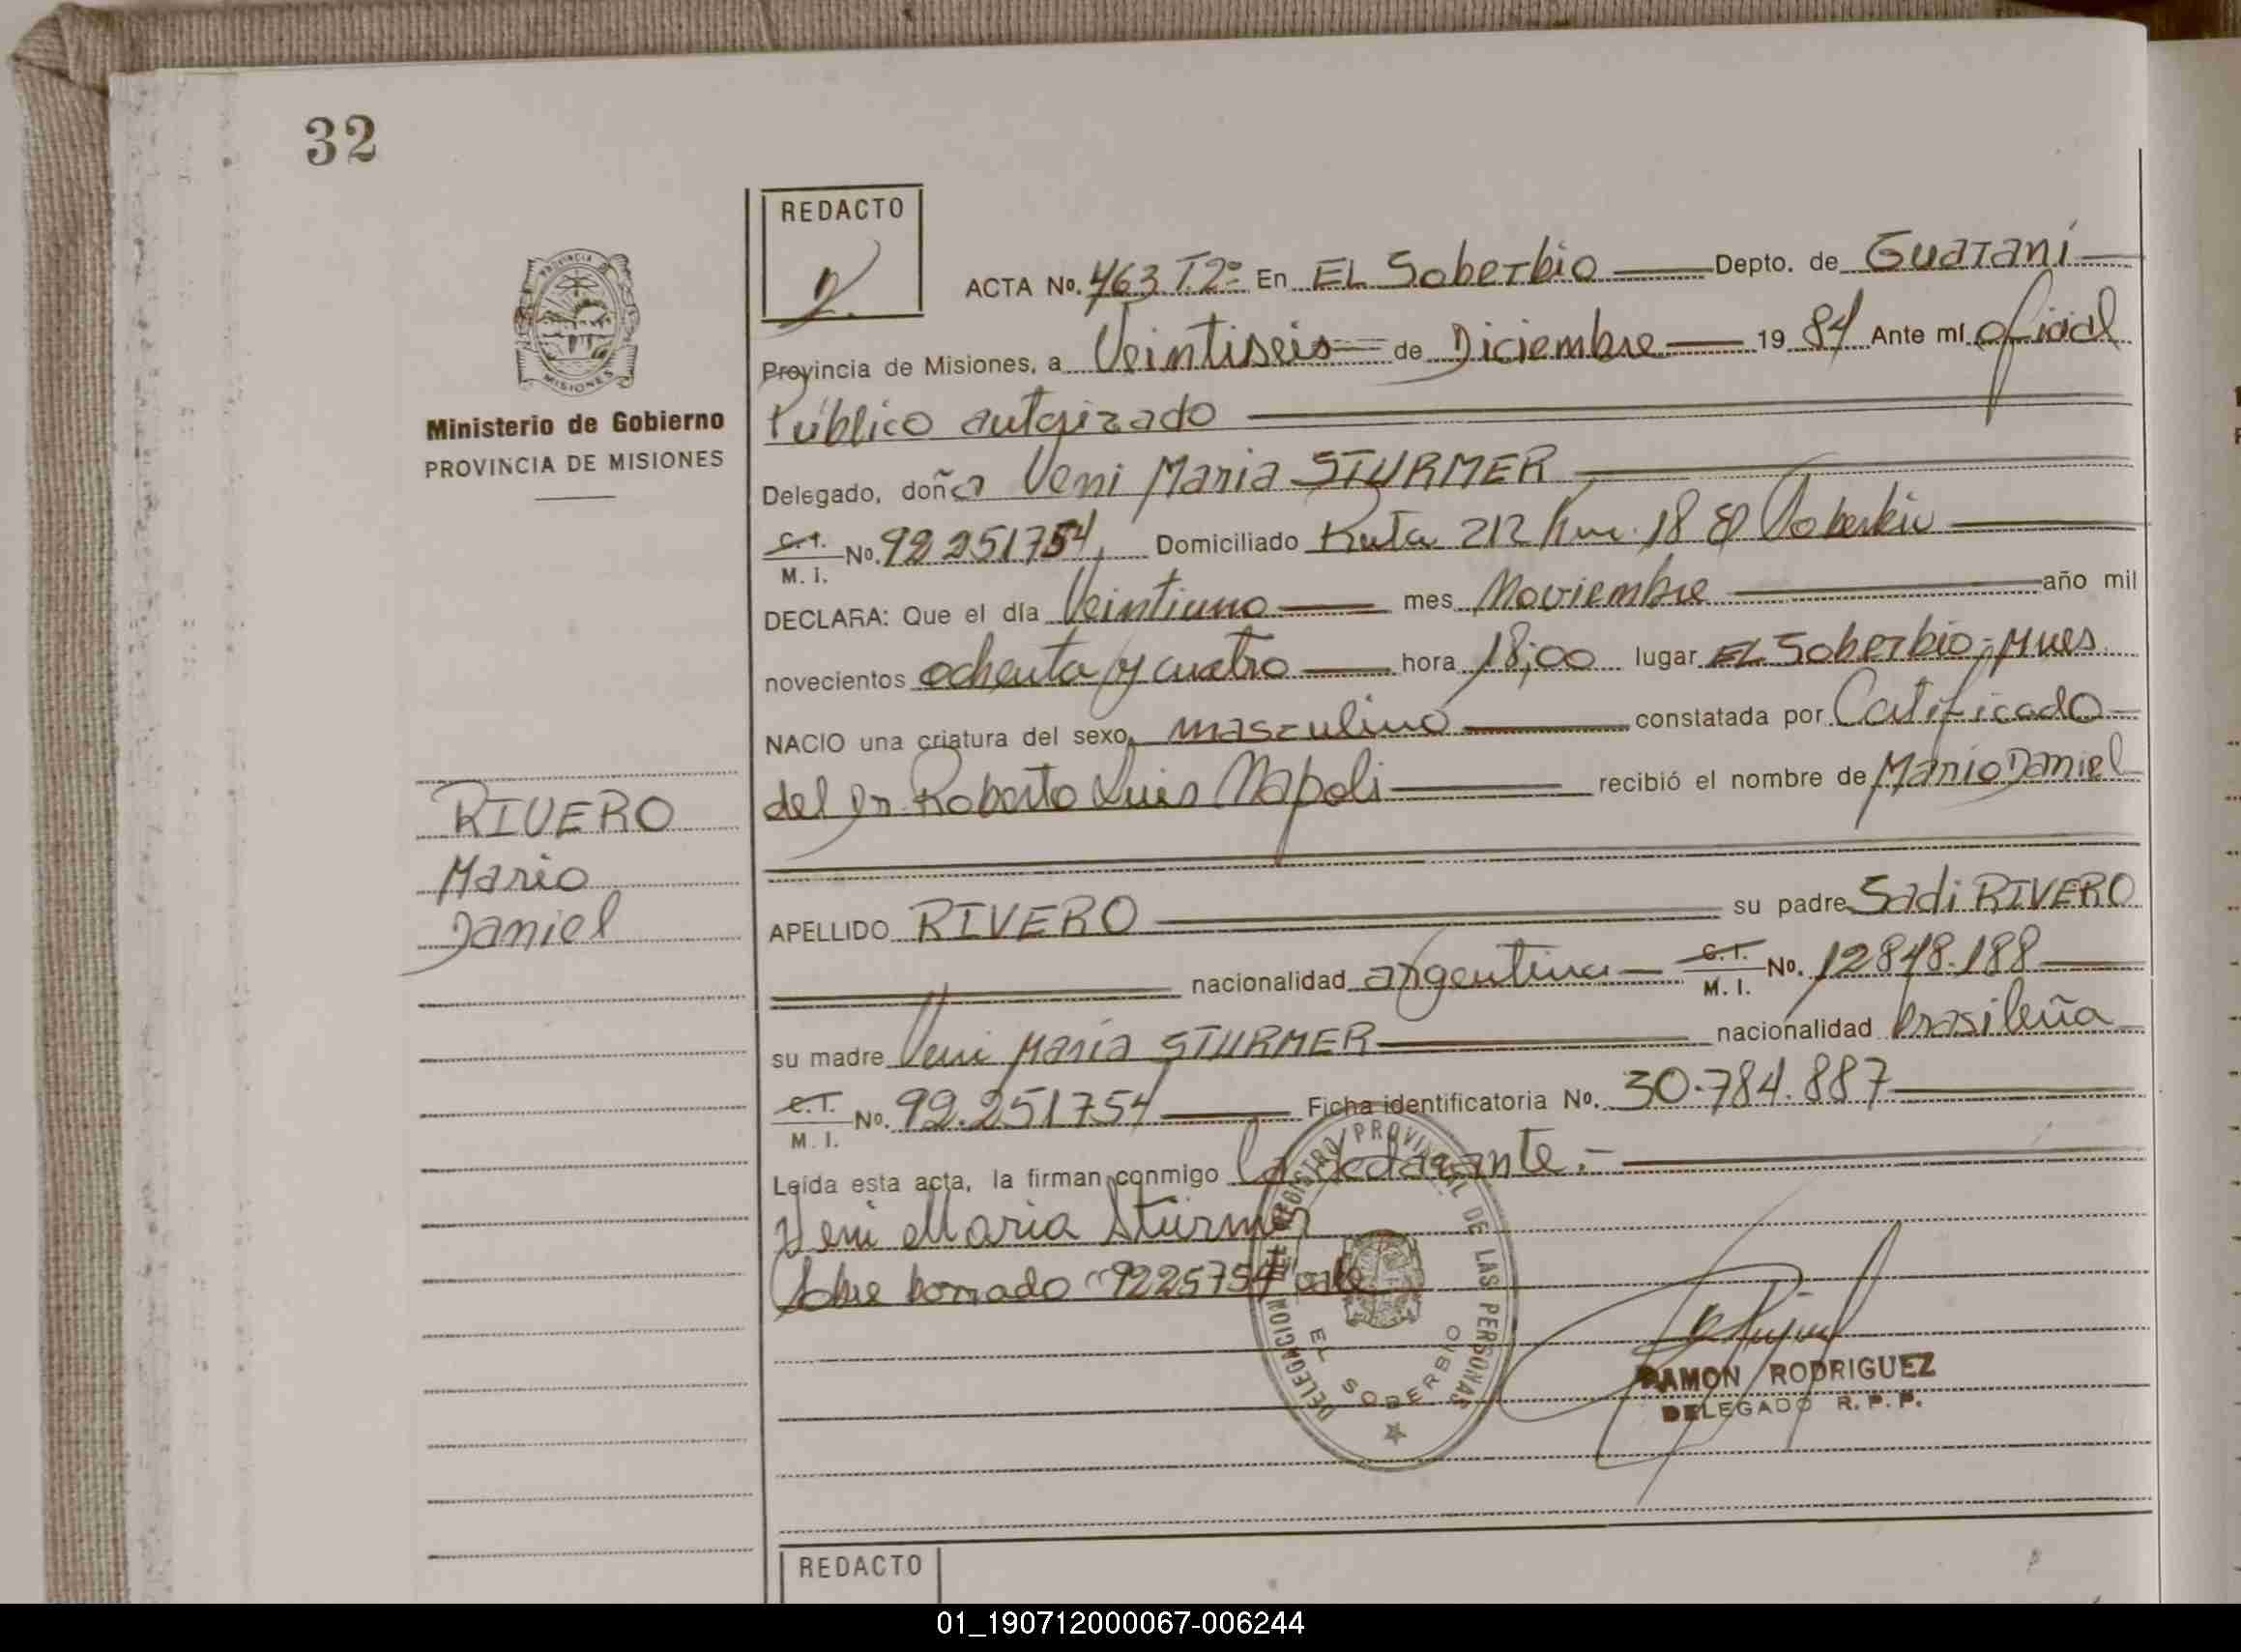 32
REDACTO
2.
ACTA No. 463 T.2º En EL Soberbio Depto. de Guaraní
Provincia de Misiones, a Veintiseis de Diciembre 19 84 Ante mí oficial
Público autorizado
Delegado, doña Veni Maria STURMER
C.I. M. I. No. 92 251754, Domiciliado Ruta 212 Km. 18 El Soberbio
DECLARA: Que el día Veintiuno mes Noviembre año mil
novecientos ochenta y cuatro hora 18;00 lugar EL Soberbio, Mnes
NACIO una criatura del sexo masculino constatada por Certificado
del Dr. Roberto Luis Napoli recibió el nombre de Mario Daniel
APELLIDO RIVERO su padre Sadi RIVERO
nacionalidad argentina C.I. M. I. No. 12848.188
su madre Veni Maria STURMER nacionalidad brasileña
C.I. M. I. No. 92.251754 Ficha identificatoria No. 30.784.887
Leída esta acta, la firman conmigo la declarante.-
Veni Maria Sturmer
Sobre borrado "9225754" vale
RAMON RODRIGUEZ
DELEGADO R. P. P.
DELEGACION REGISTRO PROVINCIAL DE LAS PERSONAS
EL SOBERBIO
PROVINCIA DE
MISIONES
Ministerio de Gobierno
PROVINCIA DE MISIONES
RIVERO
Mario
Daniel
REDACTO
01_190712000067-006244